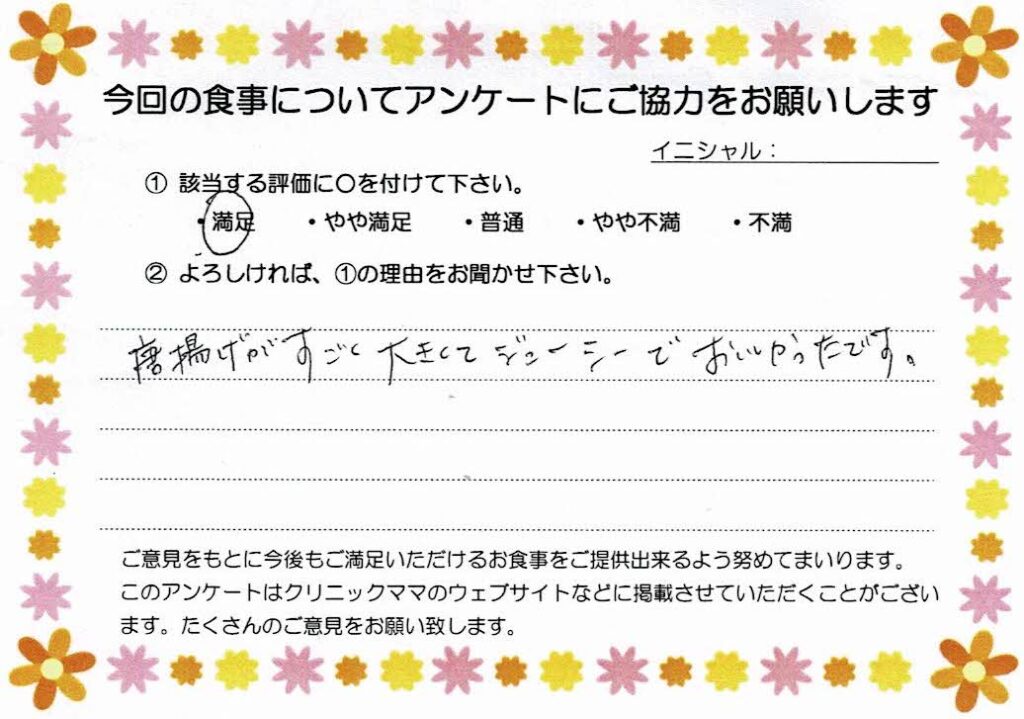 今回の食事についてアンケートにご協力をお願いします
イニシャル：
① 該当する評価に〇を付けて下さい。
・満足 ・やや満足 ・普通 ・やや不満 ・不満
② よろしければ、①の理由をお聞かせ下さい。
唐揚げがすごく大きくてジューシーでおいしかったです。
ご意見をもとに今後もご満足いただけるお食事をご提供出来るよう努めてまいります。
このアンケートはクリニックママのウェブサイトなどに掲載させていただくことがござい
ます。たくさんのご意見をお願い致します。